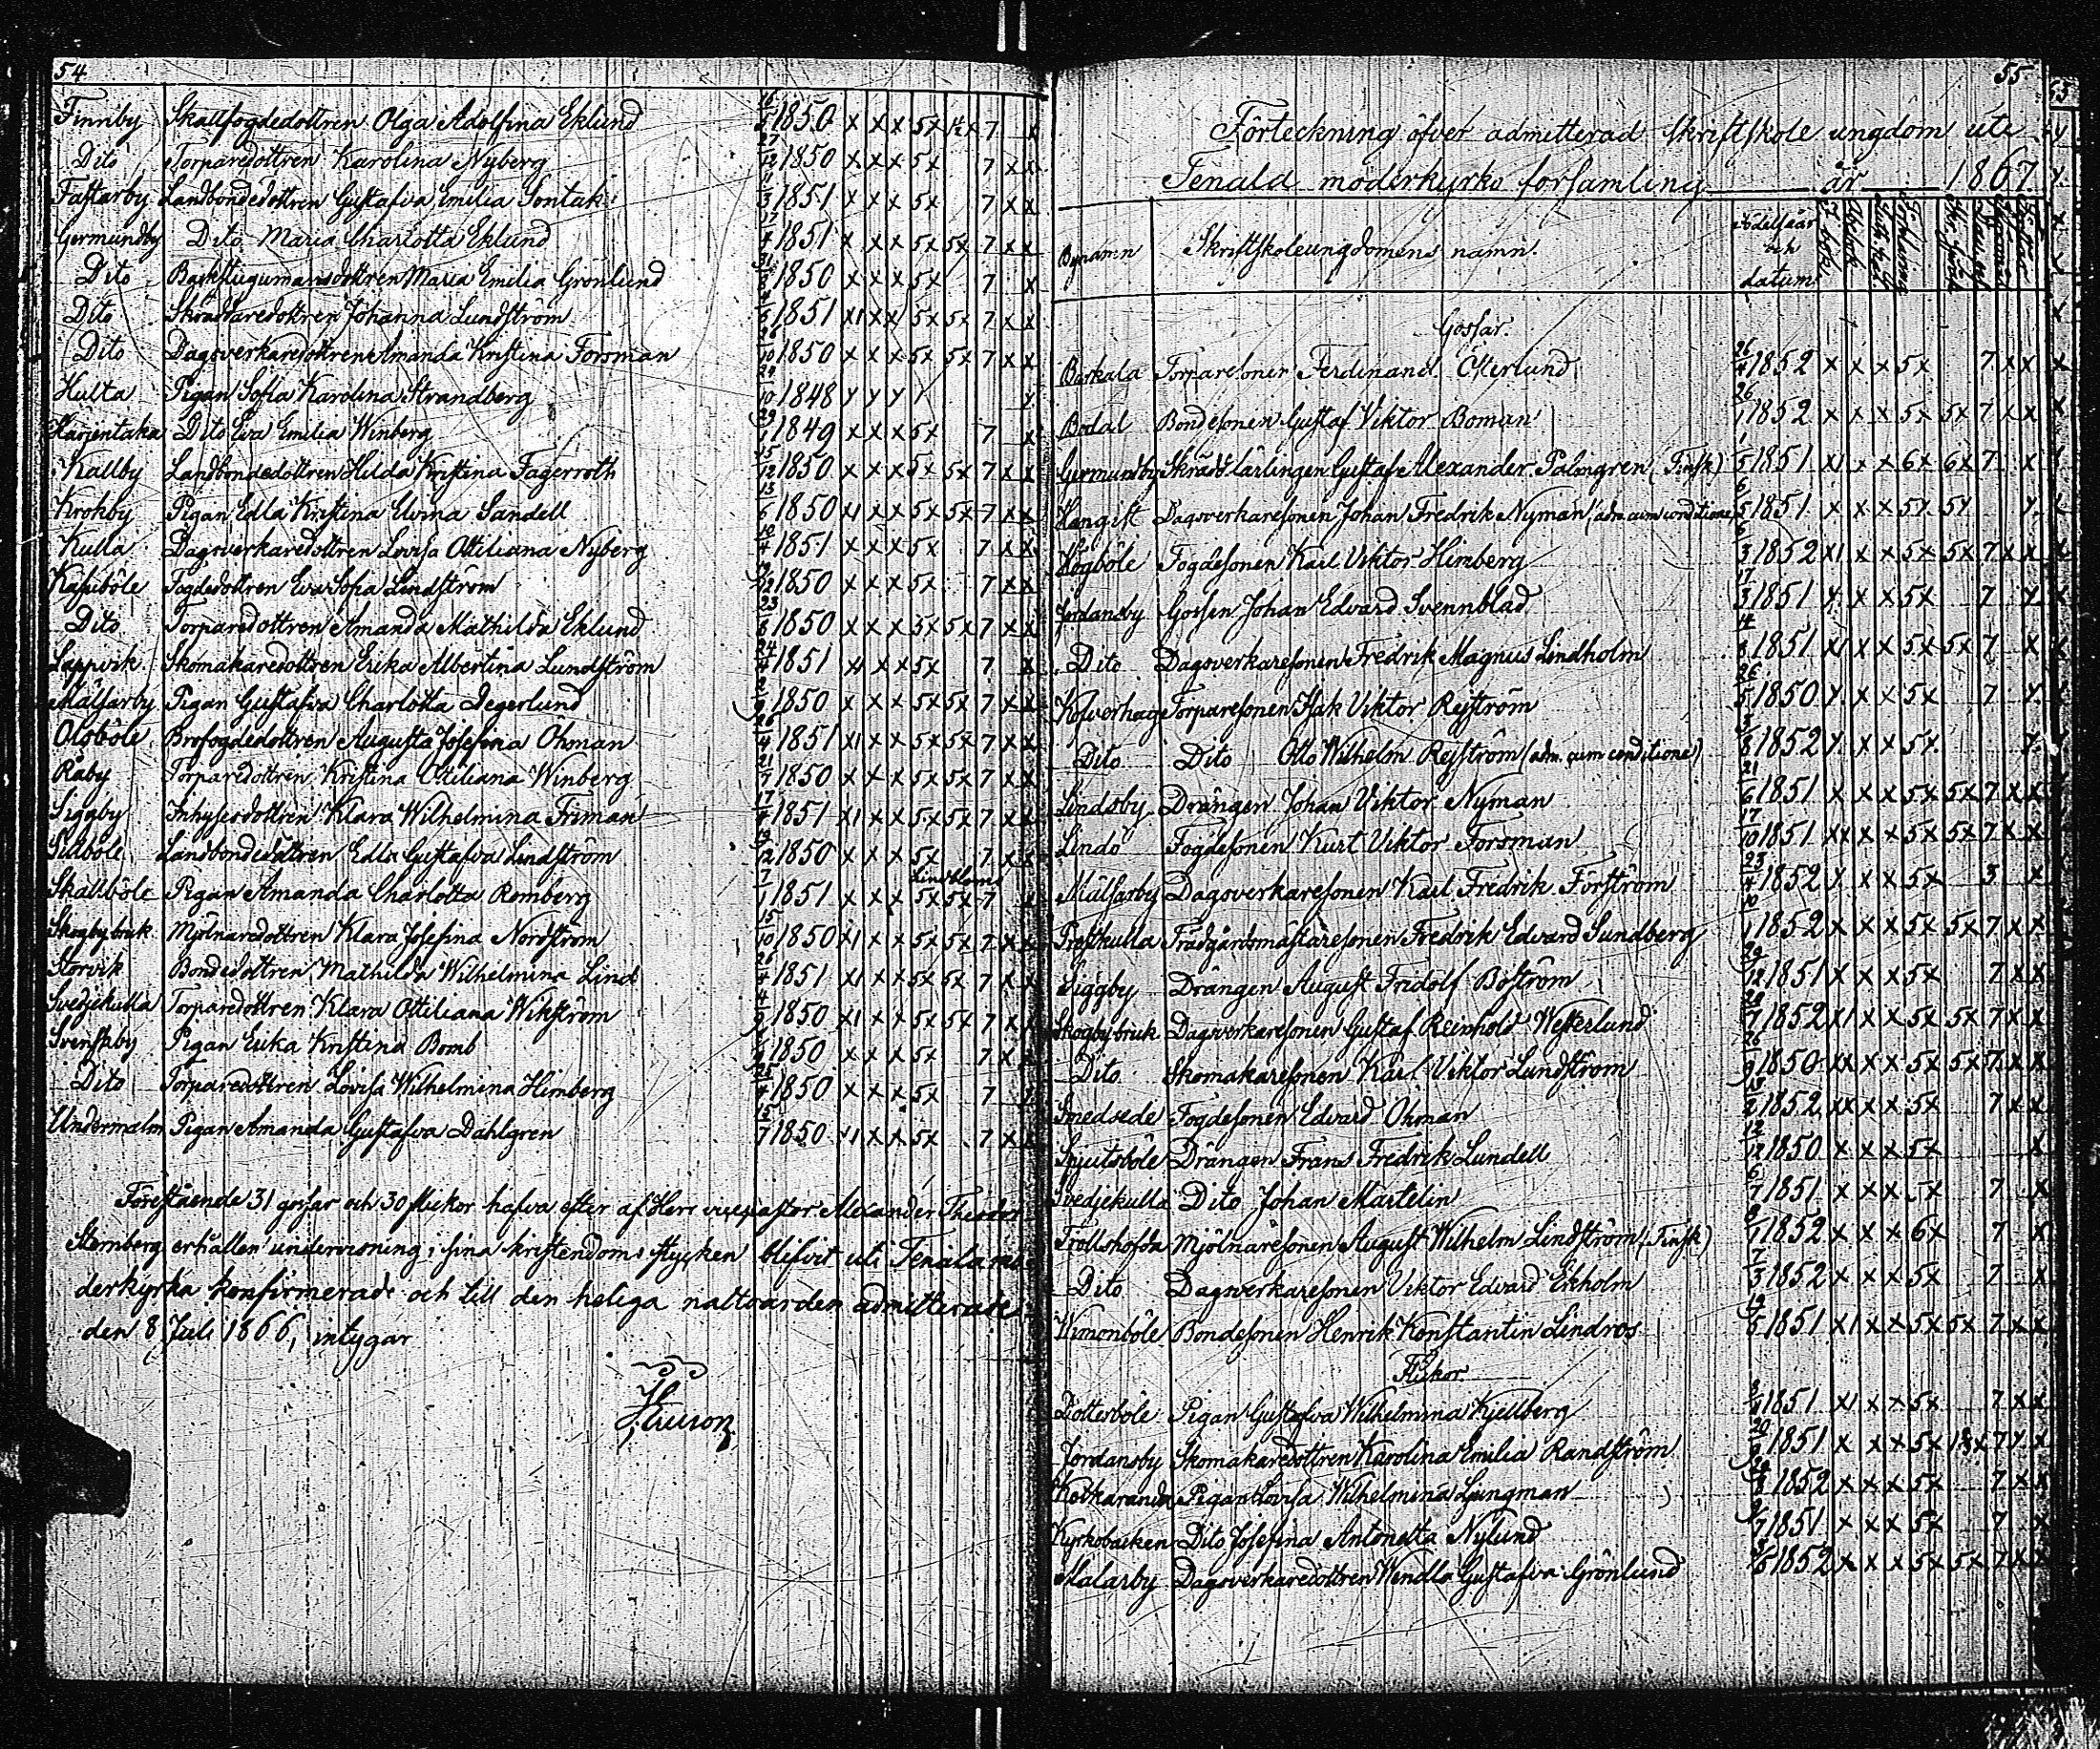 54
Finnby Skallfogdedottren Olga Adolfina Eklund 1850 x x x 5x 7 x
Dito Torparedottren Karolina Nyberg 1850 x x x 5x 7 x x
Fastarby Landbondedottren Gustafva Emilia Sontak 1851 x x x 5x 7 x x
Germundby Dito Maria Charlotta Eklund 1851 x x x 5x 5x 7 x x
Dito Backstugumansdottren Maria Emilia Grönlund 1850 x x x 5x 7 x
Dito Skräddaredottren Johanna Lundström 1851 x1 x x 5x 5x 7 x x
Dito Dagsverkaredottren Amanda Kristina Forsman 1850 x x x 5x 5x 7 x x
Hulta Pigan Sofia Karolina Strandberg 1848
Harjentaka Dito Eva Emilia Winberg 1849 x x x 5x 7 x
Kallby Landbondedottren Hilda Kristina Fagerroth 1850 x x x 5x 5x 7 x x
Krokby Pigan Edla Kristina Elvina Sandell 1850 x1 x x 5x 5x 7 x x
Kulla Dagsverkaredottren Lovisa Ottiliana Nyberg 1851 x x x 5x 7 x x
Kassböle Fogdedottren Eva Sofia Lindström 1850 x x x 5x 7 x x
Dito Torparedottren Amanda Mathilda Eklund 1850 x x x 5x 5x 7 x x
Lappvik Skomakaredottren Erika Albertina Lundström 1851 x1 x x 5x 7 x
Mälsarby Pigan Gustafva Charlotta Degerlund 1850 x x x 5x 5x 7 x x
Olsböle Brofogdedottren Augusta Josefina Öhman 1851 x1 x x 5x 5x 7 x x
Råby Torparedottren Kristina Ottiliana Winberg 1850 x x x 5x 5x 7 x x
Siggby Inhysesdottren Klara Wilhelmina Friman 1851 x1 x x 5x 5x 7 x x
Sillböle Landbondedottren Edla Gustafva Lindström 1850 x x x 5x 7 x x
Skallböle Pigan Amanda Charlotta Remberg 1851 x x x 5x 5x 7 x
Skogby bruk Mjölnaredottren Klara Josefina Nordström 1850 x1 x x 5x 5x 7 x x
Storvik Bondedottren Mathilda Wilhelmina Lind 1851 x1 x x 5x 5x 7 x x
Svedjekulla Torparedottren Klara Ottiliana Wikström 1850 x1 x x 5x 5x 7 x x
Svenskby Pigan Erika Kristina Bomb 1850 x x x 5x 7 x
Dito Torparedottren Lovisa Wilhelmina Himberg 1850 x x x 5x 7
Undermalm Pigan Amanda Gustafva Dahlgren 1850 x1 x x 5x 7 x x
Förestående 31 gossar och 30 flickor hafva efter af Herr vicepastor Alexander Theodor
Sternberg erhållen undervisning i sina kristendoms stycken blifvit uti Tenala mo-
derkyrka konfirmerade och till den heliga nattvarden admitterade
den 8 Juli 1866, intygar
55
Förteckning öfver admitterad skriftskole ungdom uti
Tenala moderkyrko församling år 1867
Bynamn Skriftskoleungdomens namn. Födelseår och datum
Gossar.
Barkala Torparesonen Ferdinand Österlund 26/4 1852 x x x 5x 7 x x
Bodal Bondesonen Gustaf Viktor Boman 26/1 1852 x x x 5x 5x 7 x x
Germundby Skrädd. lärlingen Gustaf Alexander Palmgren (Finsk) 1/5 1851 x1 x x 6x 6x 7 x
Hangist Dagsverkaresonen Johan Fredrik Nyman (adm. cum conditione) 1851 x x x 5x 5x
Högböle Fogdesonen Karl Viktor Himberg 1852 x1 x x 5x 5x 7 x x
Jordansby Gossen Johan Edvard Svennblad 17/3 1851 x x x 5x 7 x
Dito Dagsverkaresonen Fredrik Magnus Lindholm 14/8 1851 x1 x x 5x 5x 7 x
Kofverhage Torparesonen Isak Viktor Rejström 26/5 1850 x x x 5x 7 x
Dito Dito Otto Wilhelm Rejström (adm. cum conditione) 1852 x x x 5x
Lindsby Drängen Johan Viktor Nyman 21/6 1851 x x x 5x 5x 7 x x
Lindö Fogdesonen Kurt Viktor Forsman 17/10 1851 xx x x 5x 5x 7 x x
Mälsarby Dagsverkaresonen Karl Fredrik Förström 23/4 1852 x x x 5x 3 x
Prestkulla Trädgårdsmästaresonen Fredrik Edvard Sundberg 10/1 1852 x x x 5x 5x 7 x x
Siggby Drängen August Fridolf Boström 29/12 1851 x x x 5x 7 x x
Skogby bruk Dagsverkaresonen Gustaf Reinhold Westerlund 1852 x1 x x 5x 5x 7 x x
Dito Skomakaresonen Karl Viktor Lundström 1850 xx x x 5x 5x 7 x x
Smedsede Fogdesonen Edvard Öhman 1852 xx x x 5x 7 x x
Spjutsböle Drängen Frans Fredrik Lundell 12/12 1850 x x x 5x x
Svedjekulla Dito Johan Martelin 6/7 1851 x x x 5x 7 x
Trollshofda Mjölnaresonen August Wilhelm Lindström (Finsk) 8/1 1852 x x x 6x 7 x
Dito Dagsverkaresonen Viktor Edvard Ekholm 7/3 1852 x x x 5x 7 x
Wimonböle Bondesonen Henrik Konstantin Lindros 1851 x1 x x 5x 5x 7 x x
Flickor
Dottesböle Pigan Gustafva Wilhelmina Kjellberg 1851 x1 x x 5x 7 x x
Jordansby Skomakaredottren Karolina Emilia Randström 20/9 1851 x x x 5x 7 x x
Kotkaranda Pigan Lovisa Wilhelmina Ljungman 1852 x x x 5x 7 x x
Kyrkobacken Dito Josefina Antonetta Nylund 1851 x x x 5x 7 x
Malarby Dagsverkaredottren Wendla Gustafva Grönlund 1852 x x x 5x 5x 7 x x